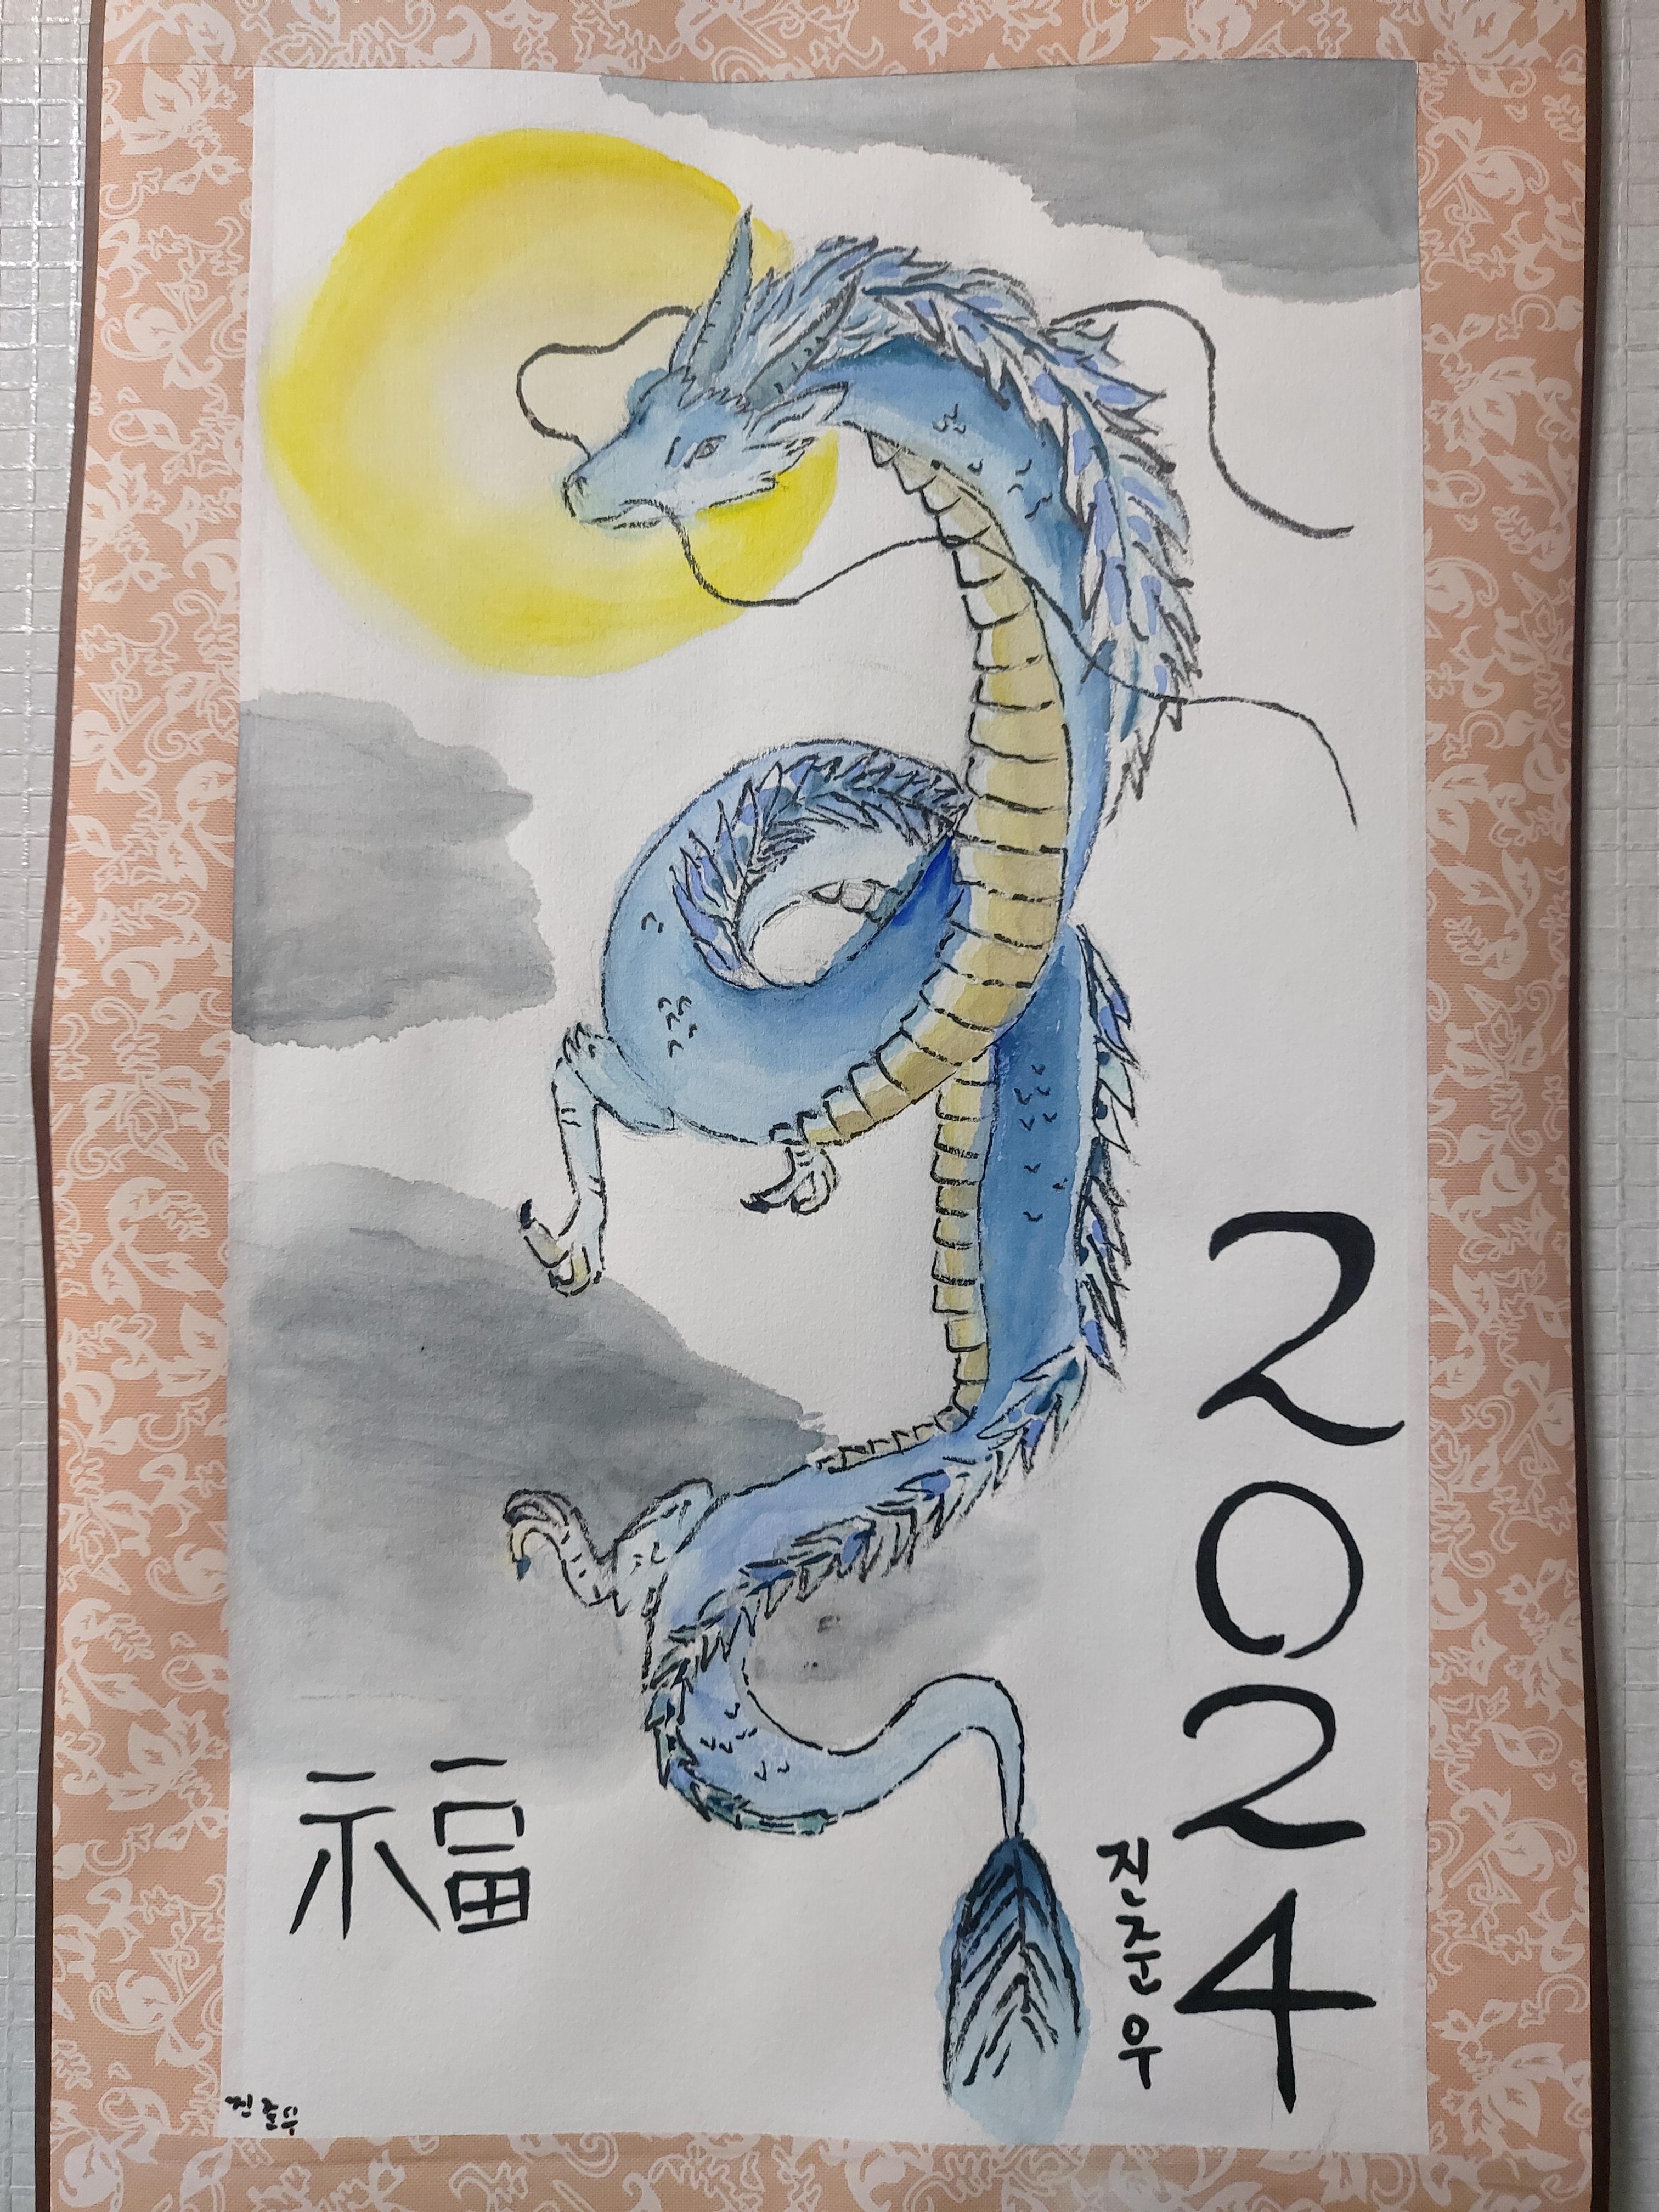 2024
진준우
福
진준우